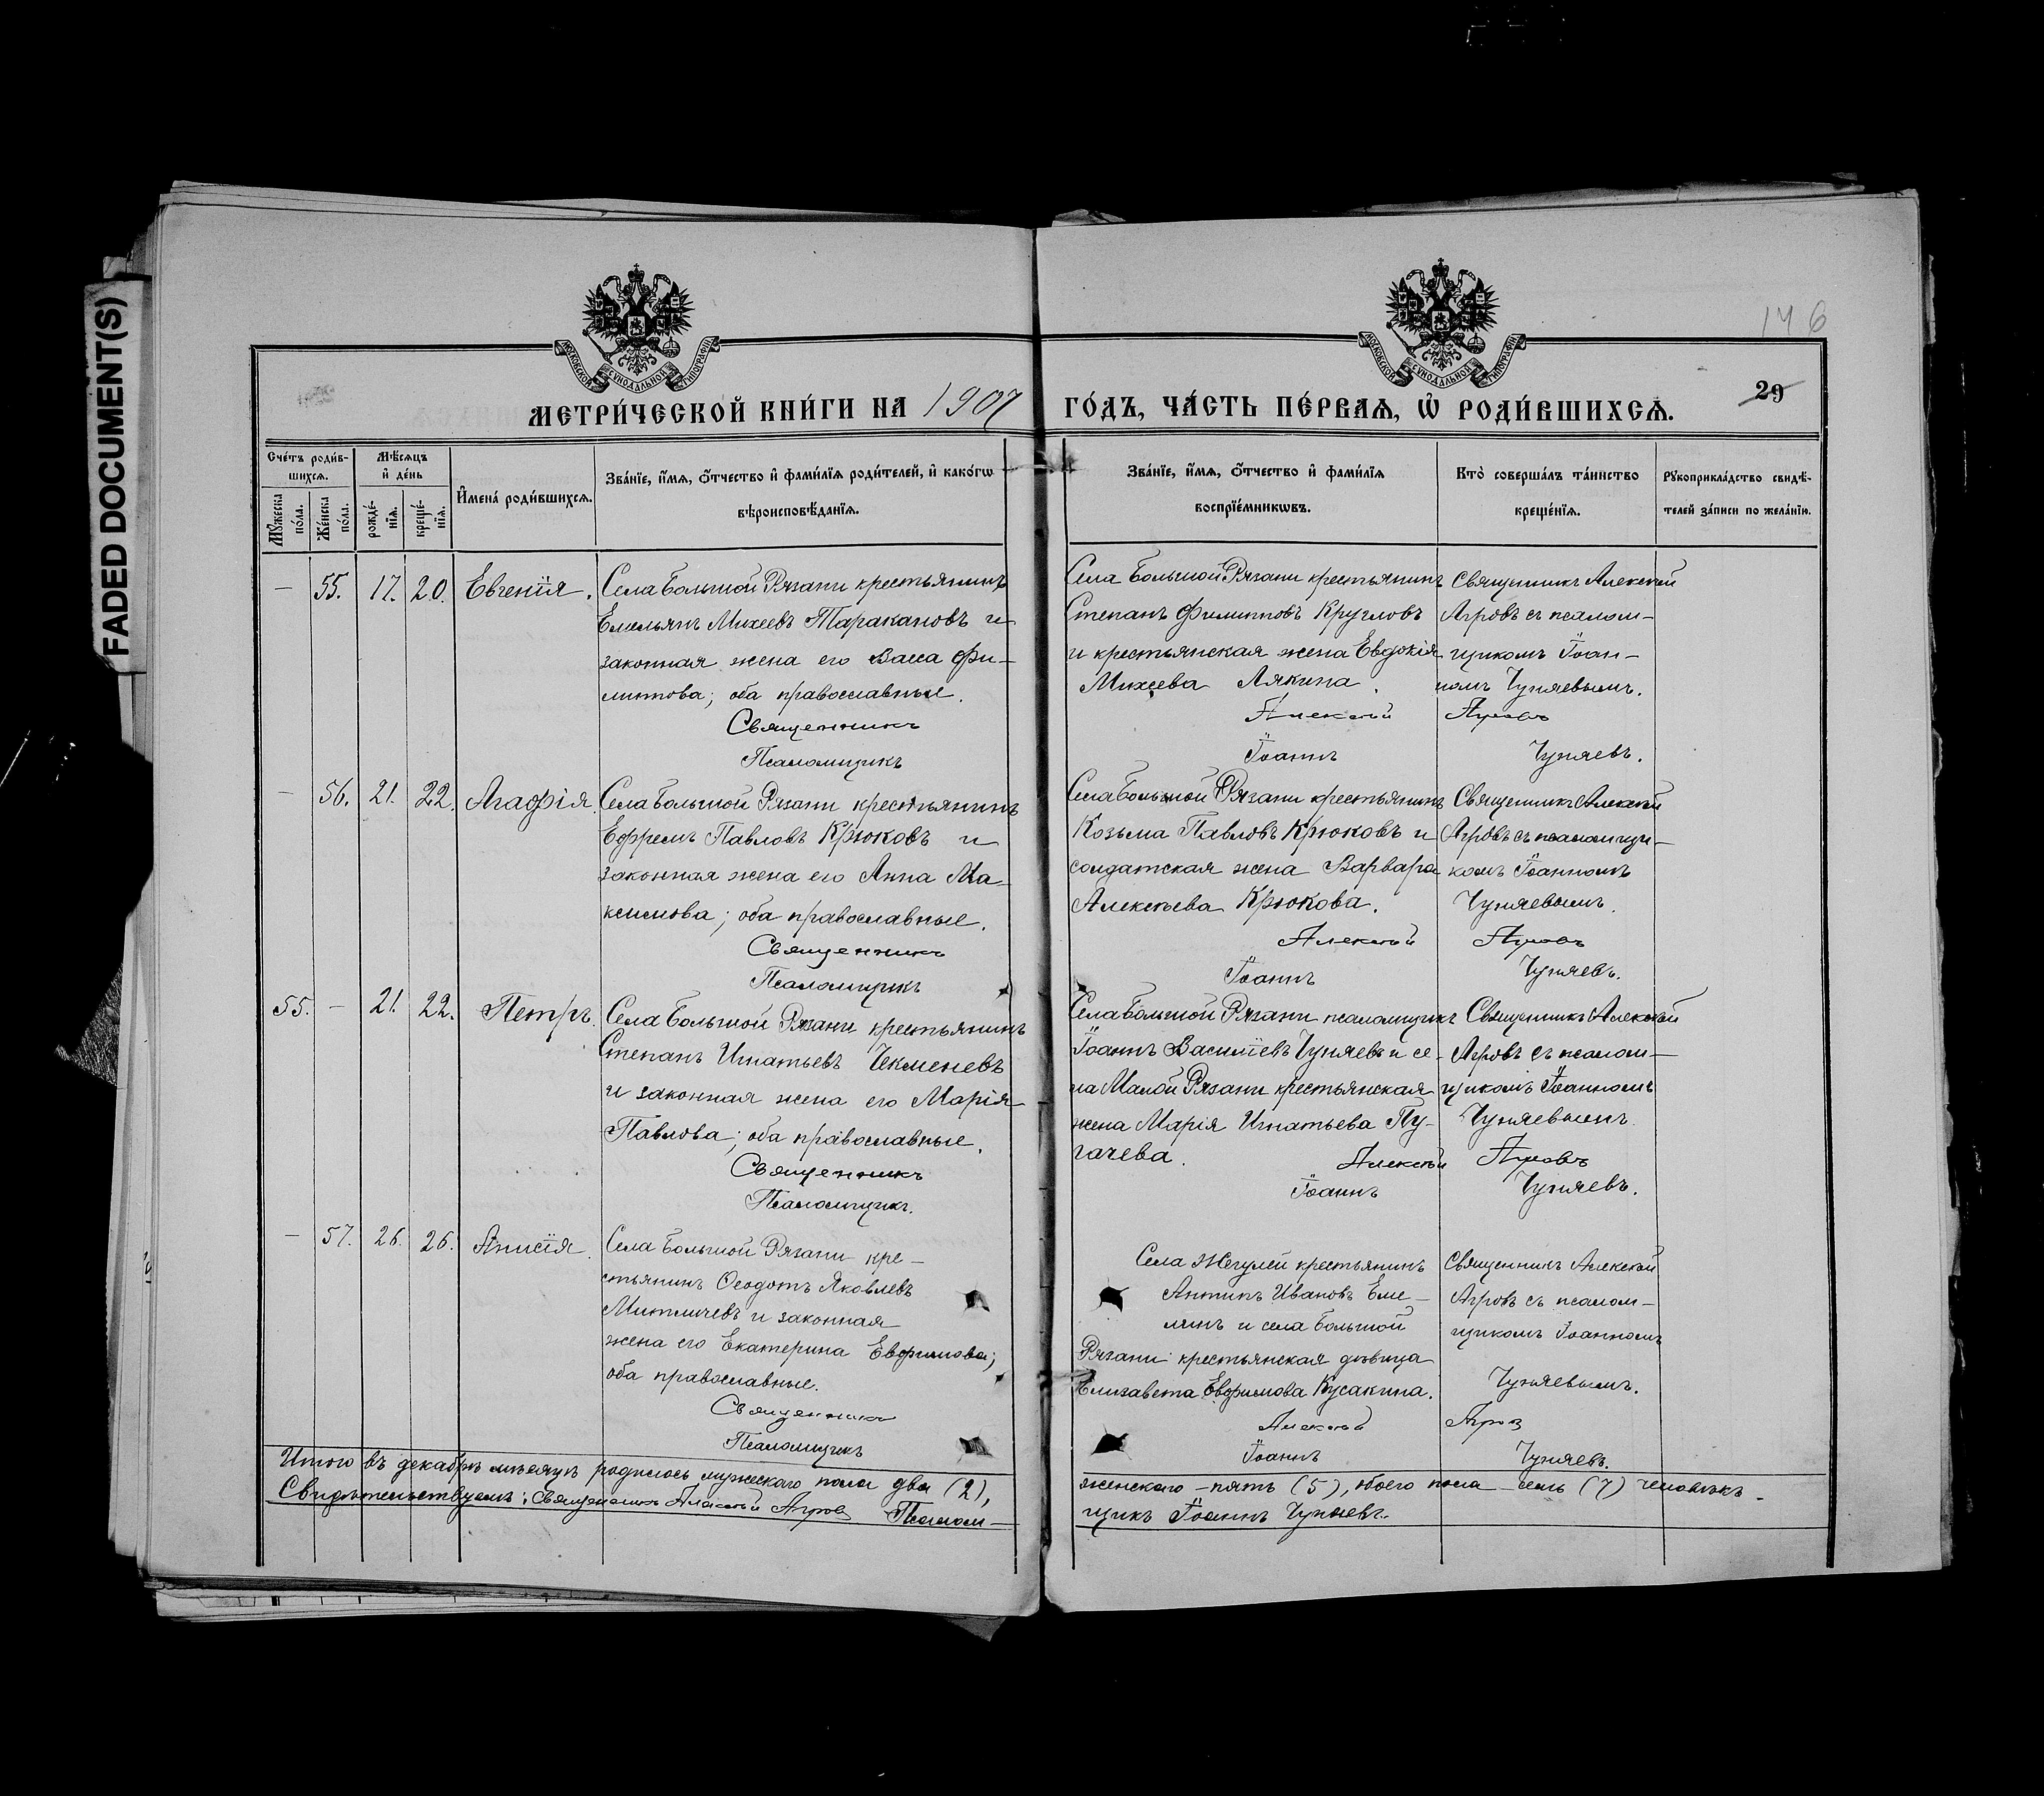 FADED DOCUMENT(S)
146
29
МОСКОВСКОЙ СѴНОДАЛЬНОЙ ТИПОГРАФІИ
МОСКОВСКОЙ СѴНОДАЛЬНОЙ ТИПОГРАФІИ
МЕТРИ́ЧЕСКОЙ КНИ́ГИ НА 1907 ГО́ДЪ, ЧА́СТЬ ПЕ́РВАѦ, Ѡ҆ РОДИ́ВШИХСѦ.
Сче́тъ роди́в-
шихсѧ.
Мꙋ́жеска по́ла.
Же́нска по́ла.
Мѣ́сѧцъ
и҆ де́нь
рожде́-
нїѧ.
креще́-
нїѧ.
И҆мена́ роди́вшихсѧ.
Зва́нїе, и҆́мѧ, о҆́тчество и҆ фами́лїѧ роди́телей, и҆ како́гѡ
вѣроисповѣ́данїѧ.
Зва́нїе, и҆́мѧ, о҆́тчество и҆ фами́лїѧ
воспрїе́мникѡвъ.
Кто̀ соверша́лъ та́инство
креще́нїѧ.
Рꙋкоприкла́дство свидѣ́-
телей за́писи по жела́нїю.
— 55. 17. 20. Евгенія.
Села Большой Рязани крестьянинъ
Емельянъ Михеевъ Таракановъ и
законная жена его Васса Фи-
липпова; оба православные.
Священникъ
Псаломщикъ
Села Большой Рязани крестьянинъ
Степанъ Филипповъ Кругловъ
и крестьянская жена Евдокія
Михеева Лякина.
Алексѣй
Іоаннъ
Священникъ Алексѣй
Агровъ съ псалом-
щикомъ Іоан-
номъ Чуняевымъ.
Агровъ
Чуняевъ.
— 56. 21. 22. Агафія.
Села Большой Рязани крестьянинъ
Ефремъ Павловъ Крюковъ и
законная жена его Анна Ма-
ксимова; оба православные.
Священникъ
Псаломщикъ
Села Большой Рязани крестьянинъ
Козьма Павловъ Крюковъ и
солдатская жена Варвара
Алексѣева Крюкова.
Алексѣй
Іоаннъ
Священникъ Алексѣй
Агровъ съ псаломщи-
комъ Іоанномъ
Чуняевымъ.
Агровъ
Чуняевъ.
55. — 21. 22. Петръ.
Села Большой Рязани крестьянинъ
Степанъ Игнатьевъ Чекменевъ
и законная жена его Марія
Павлова; оба православные.
Священникъ
Псаломщикъ.
Села Большой Рязани псаломщикъ
Іоаннъ Василіевъ Чуняевъ и се-
ла Малой Рязани крестьянская
жена Марія Игнатьева Пу-
гачева.
Алексѣй
Іоаннъ
Священникъ Алексѣй
Агровъ съ псалом-
щикомъ Іоанномъ
Чуняевымъ
Агровъ
Чуняевъ.
— 57. 26. 26. Анисія.
Села Большой Рязани кре-
стьянинъ Ѳеодотъ Яковлевъ
Митличевъ и законная
жена его Екатерина Евфимова;
оба православные.
Священникъ
Псаломщикъ
Села Жегулей крестьянинъ
Антипъ Ивановъ Еме-
линъ и села Большой
Рязани крестьянская дѣвица
Елизавета Евфимова Кусакина.
Алексѣй
Іоаннъ
Священникъ Алексѣй
Агровъ съ псалом-
щикомъ Іоанномъ
Чуняевымъ.
Агров
Чуняевъ.
Итого въ декабрѣ мѣсяцѣ родилось мужескаго пола два (2), женскаго – пять (5), обоего пола – семь (7) человѣкъ.
Свидѣтельствуемъ: Священникъ Алексѣй Агров Псалом- щикъ Іоаннъ Чуняевъ.